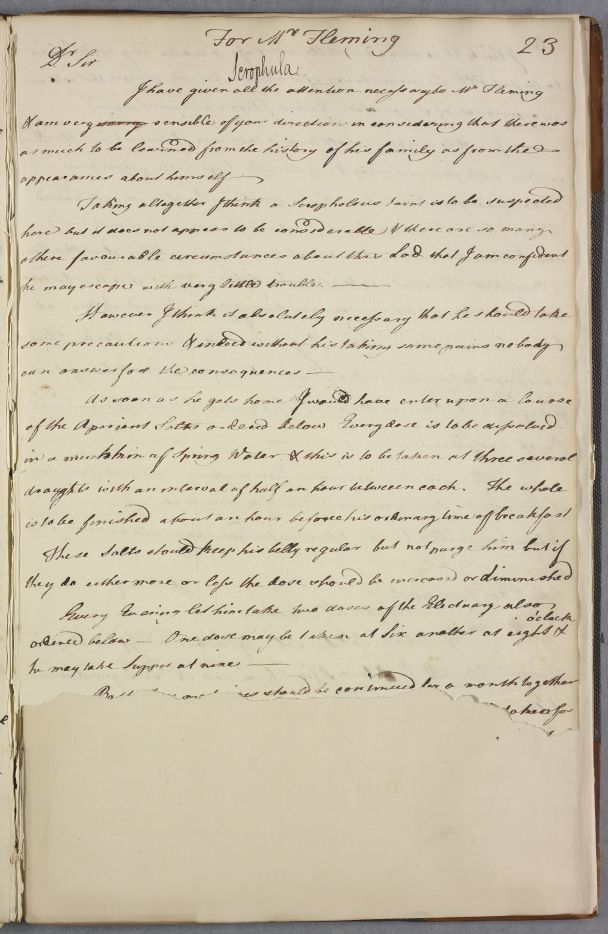 For Mr Fleming
23
Dr Sir
Scrophula
I have given all the attention necessary to Mr Fleming
& am very sensible of your direction in considering that there was
as much to be learned from the history of his family as from the
appearances about himself —
Taking altogether I think a Scropholous taint is to be suspected
here but it does not appear to be considerable & there are so many
other favourable circumstances about this Lad that I am confident
he may escape with very little trouble. —
However I think is absolutely necessary that he should take
some precautions & indeed without his taking some pains nobody
can answer for the consequences —
As soon as he gets home I would have enter upon a Course
of the Aperient Salts ordered below Every dose is to be dissolved
in a mutchkin of Spring Water & this is to be taken at three several
draughts with an interval of half an hour between each. The whole
is to be finished about an hour before his ordinary time of breakfast
These Salts should keep his belly regular but not purge him but if
they do either more or less the dose should be increased or diminished
Every Evening let him take two doses of the Electuary also
ordered below — One dose may be taken at Six another at eight o'clock &
he may take Supper at nine —
should be continued for a month together